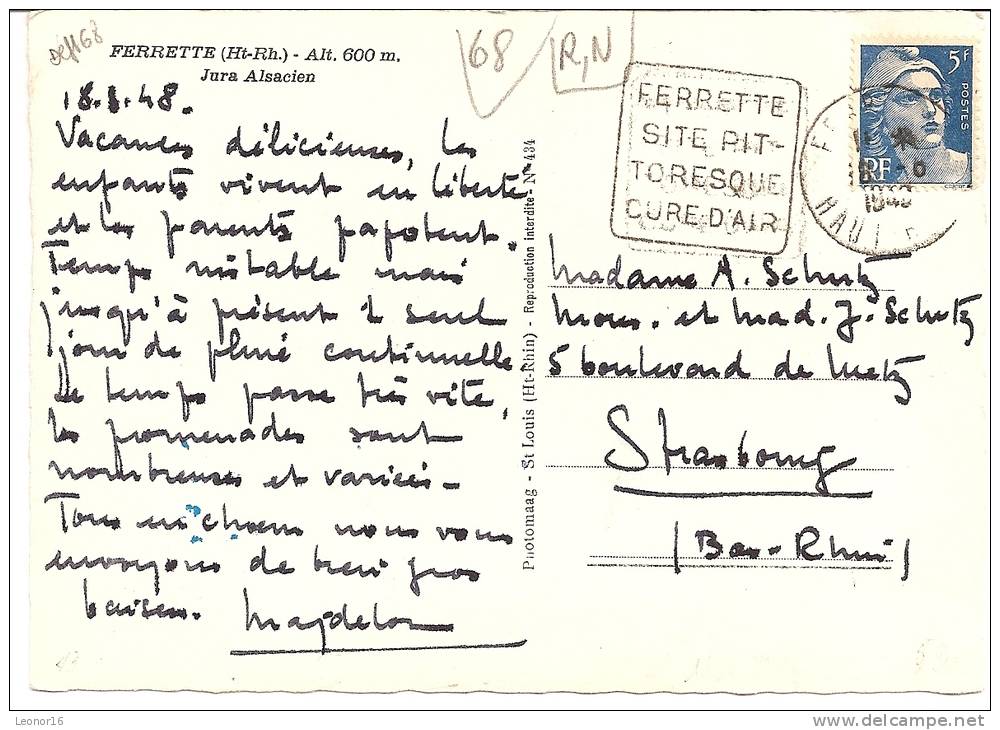 Def168
FERRETTE (Ht-Rh.) - Alt. 600 m.
Jura Alsacien
68
R,N
18.8.48.
Vacances délicieuses, les
enfants vivent en liberté
et les parents papotent.
Temps instable mais
jusqu'à présent 1 seul
jour de pluie continuelle
Le temps passe très vite,
les promenades sont
nombreuses et variées -
Tous en chœur nous vous
envoyons de bien gros
baisers. Magdelon
Photomaag - St Louis (Ht-Rhin) - Reproduction interdite - N° 434
FERRETTE
SITE PIT-
TORESQUE
CURE D'AIR
5F
POSTES
RF
Madame A. Schutz
Mons. et Mad. J. Schutz
5 boulevard de Metz
Strasbourg
(Bas-Rhin)
Leonor16
delcampe.net